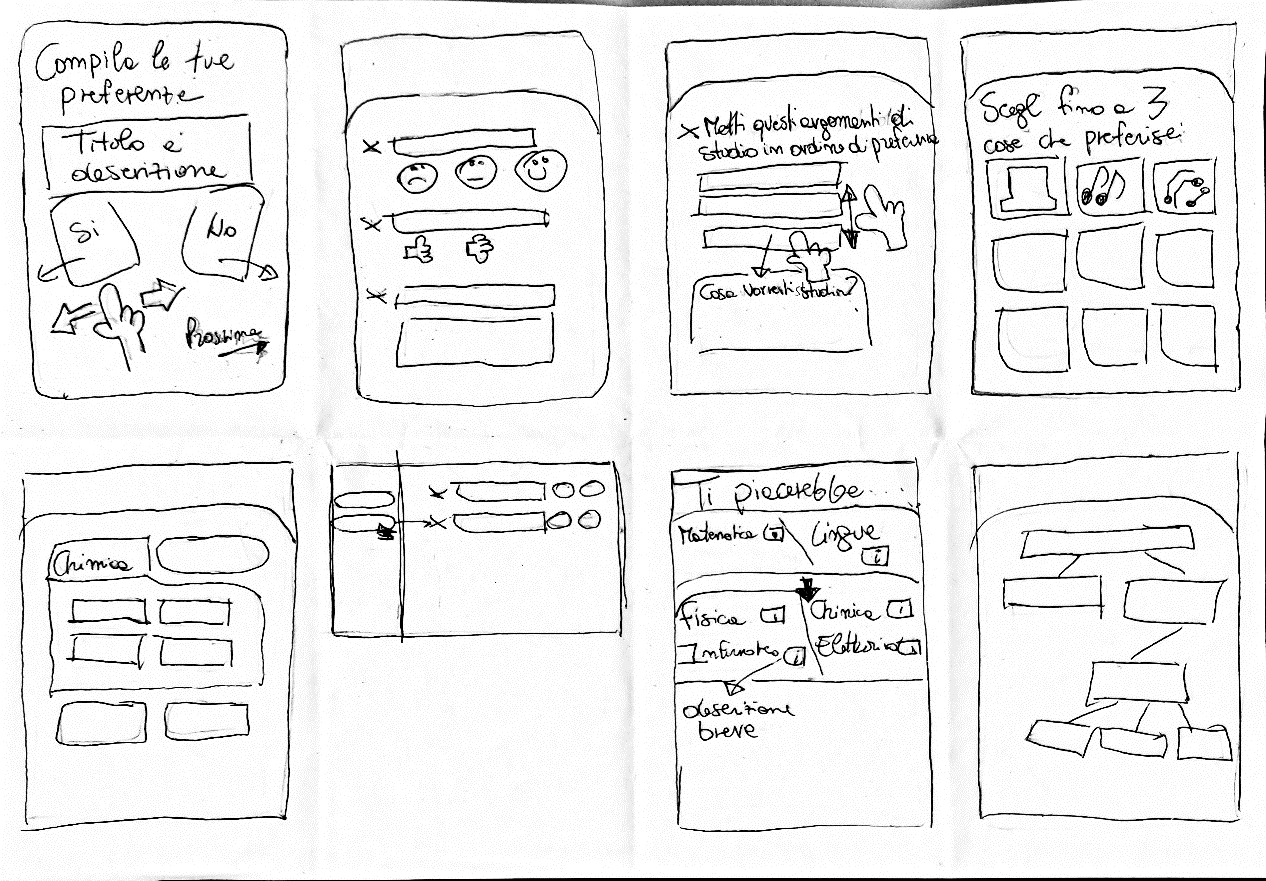 Compila le tue
preferenze
Titolo e
descrizione
Si
No
Prossima
Metti questi argomenti di
studio in ordine di preferenza
Cosa vorresti studiare?
Scegli fino a 3
cose che preferisci
Chimica
Ti piacerebbe....
Matematica i
Lingue
i
Fisica i
Chimica i
Informatica i
i
descrizione
breve